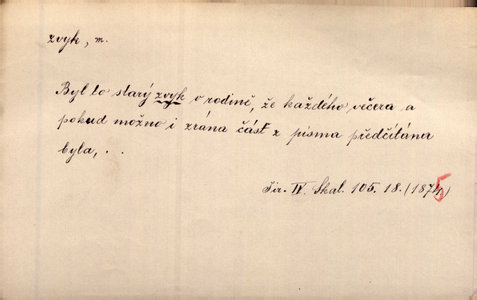 zvyk, m.
Byl to starý zvyk v rodině, že každého večera a
pokud možno i zrána část z písma předčítána
byla, . .
Jir. IV. Skal. 105. 18. (1875)